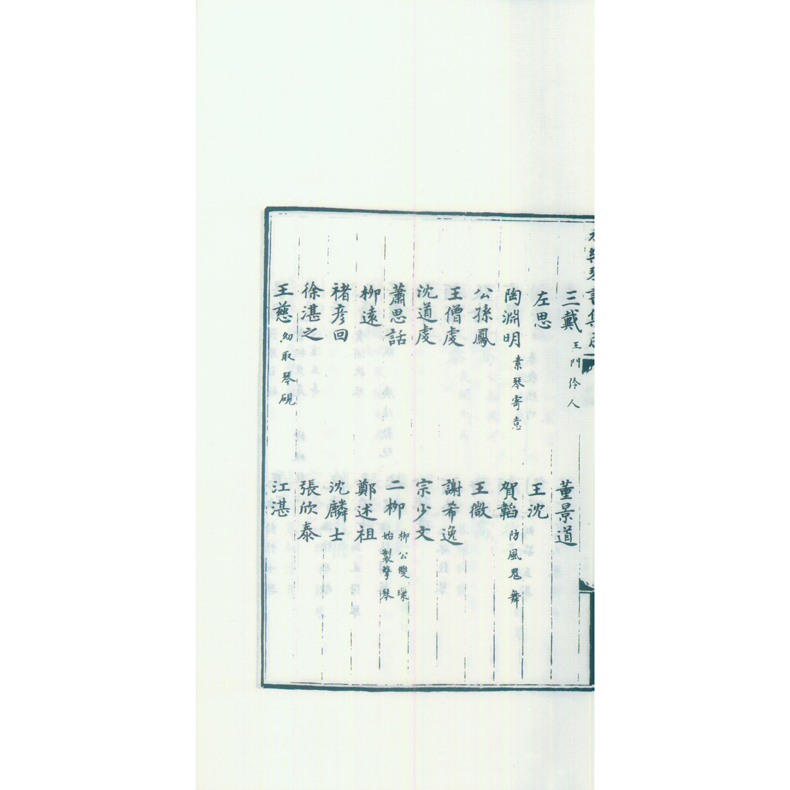 三戴 王門伶人 董景道
左思 王沈
陶淵明 素琴寄意 賀韜 防風鬼舞
公孫鳳 王微
王僧虔 謝希逸
沈道虔 宗少文
蕭思話 二柳 柳公雙璅 始製擊琴
柳遠 鄭述祖
禇彥回 沈麟士
徐湛之 張欣泰
王慈 幼取琴硯 江湛